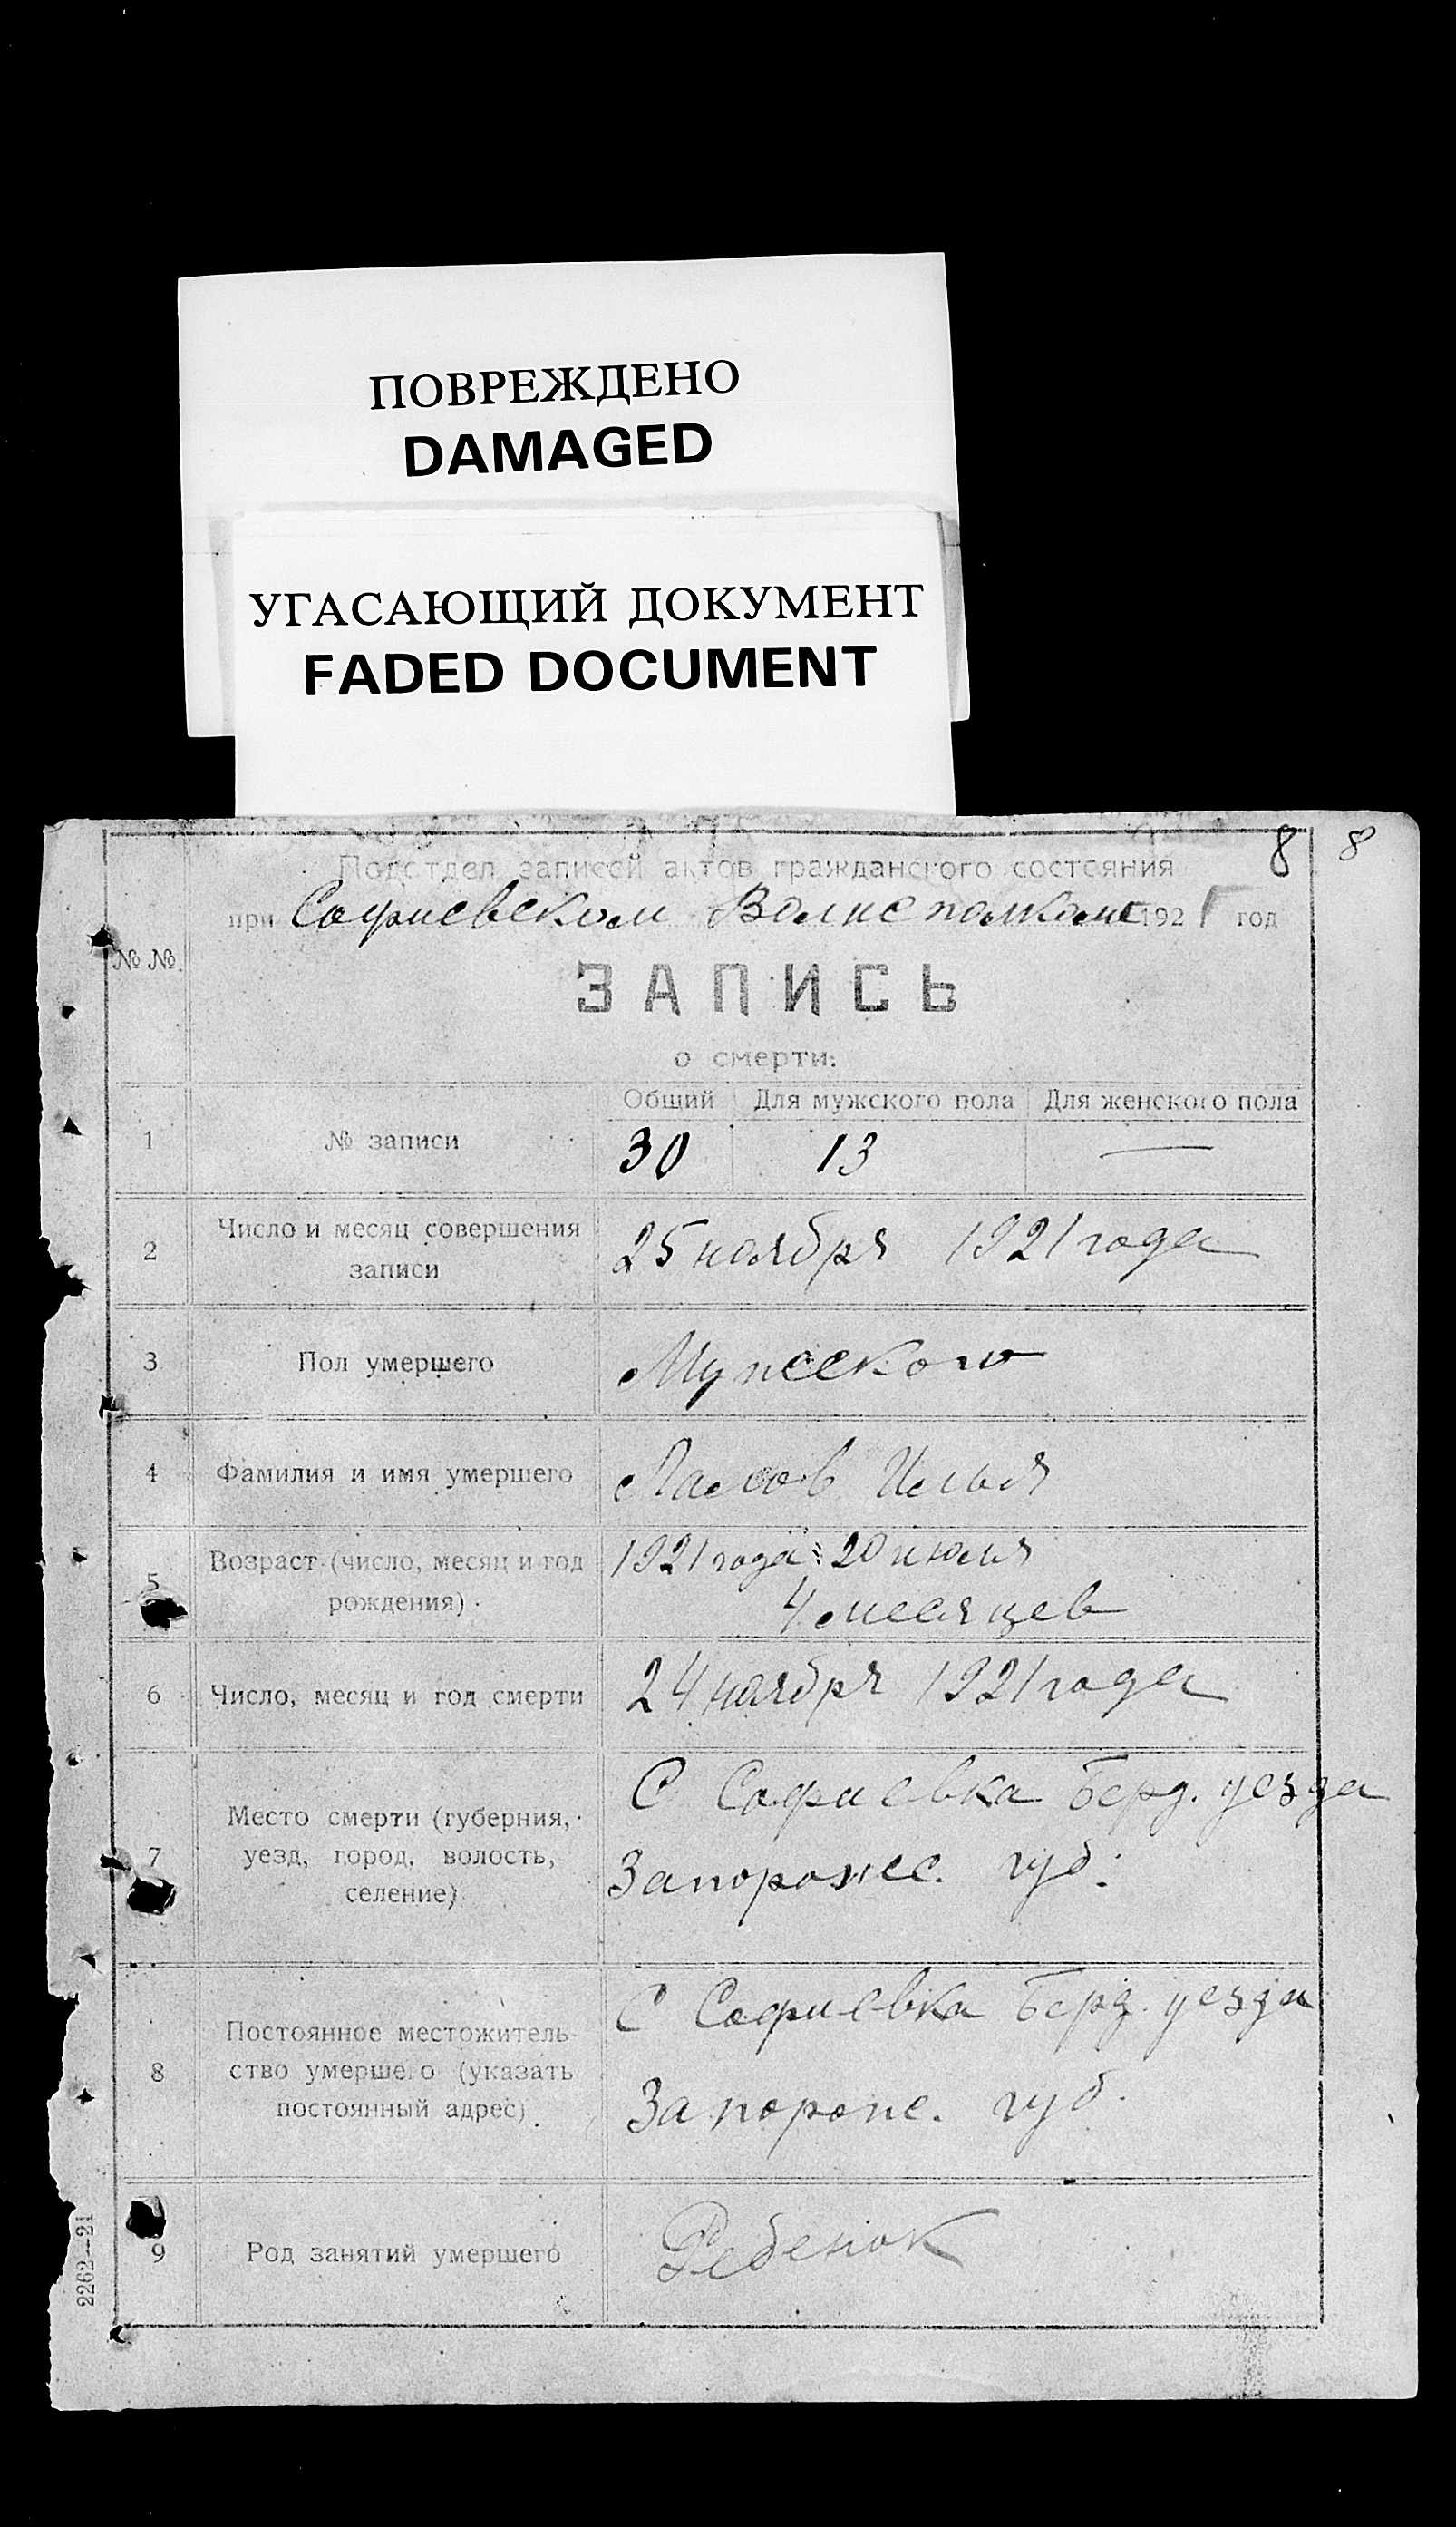 ПОВРЕЖДЕНО
DAMAGED
УГАСАЮЩИЙ ДОКУМЕНТ
FADED DOCUMENT
8 8
Подотдел записей актов гражданского состояния
при Софиевском Волисполкоме 1921 год
№ №
ЗАПИСЬ
о смерти:
Общий Для мужского пола Для женского пола
1 № записи 30 13 —
2 Число и месяц совершения
записи
25 ноября 1921 года
3 Пол умершего Мужского
4 Фамилия и имя умершего Илья
5 Возраст (число, месяц и год
рождения)
1921 года 20 июля
4 месяцев
6 Число, месяц и год смерти 24 ноября 1921 года
7 Место смерти (губерния,
уезд, город, волость,
селение)
С Софиевка Берд. уезда
Запорожс. губ.
8 Постоянное местожитель-
ство умершего (указать
постоянный адрес)
С Софиевка Берд. уезда
Запорож. губ.
9 Род занятий умершего Ребенок
2262—21